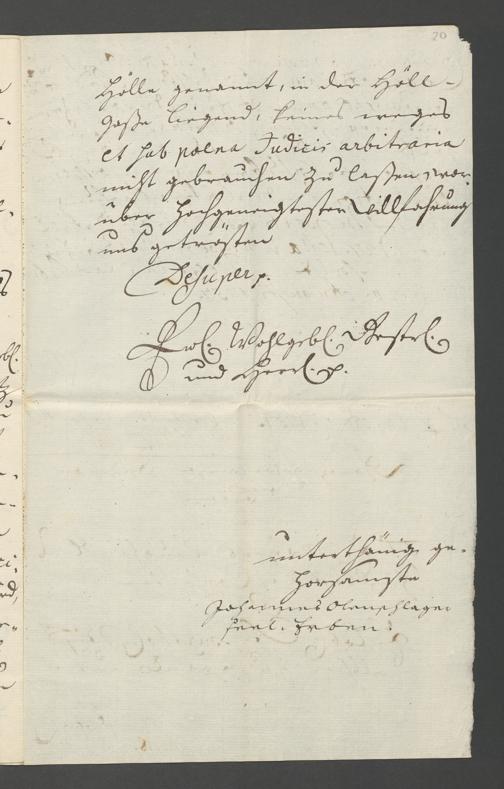 20
Hölle genannt, in der Höll-
gaße liegend, keines weges
et sub poena Judicis arbitraria
nicht gebrauchen zu laßen, wor-
über hochgeneigtester Willfahrung
uns getrösten
Desuper p.
Ewl. Wohlgebl. Gestrl.
und Herrl. p.
unterthänig ge-
horsamste
Johannes Olenschlager
seel. Erben.